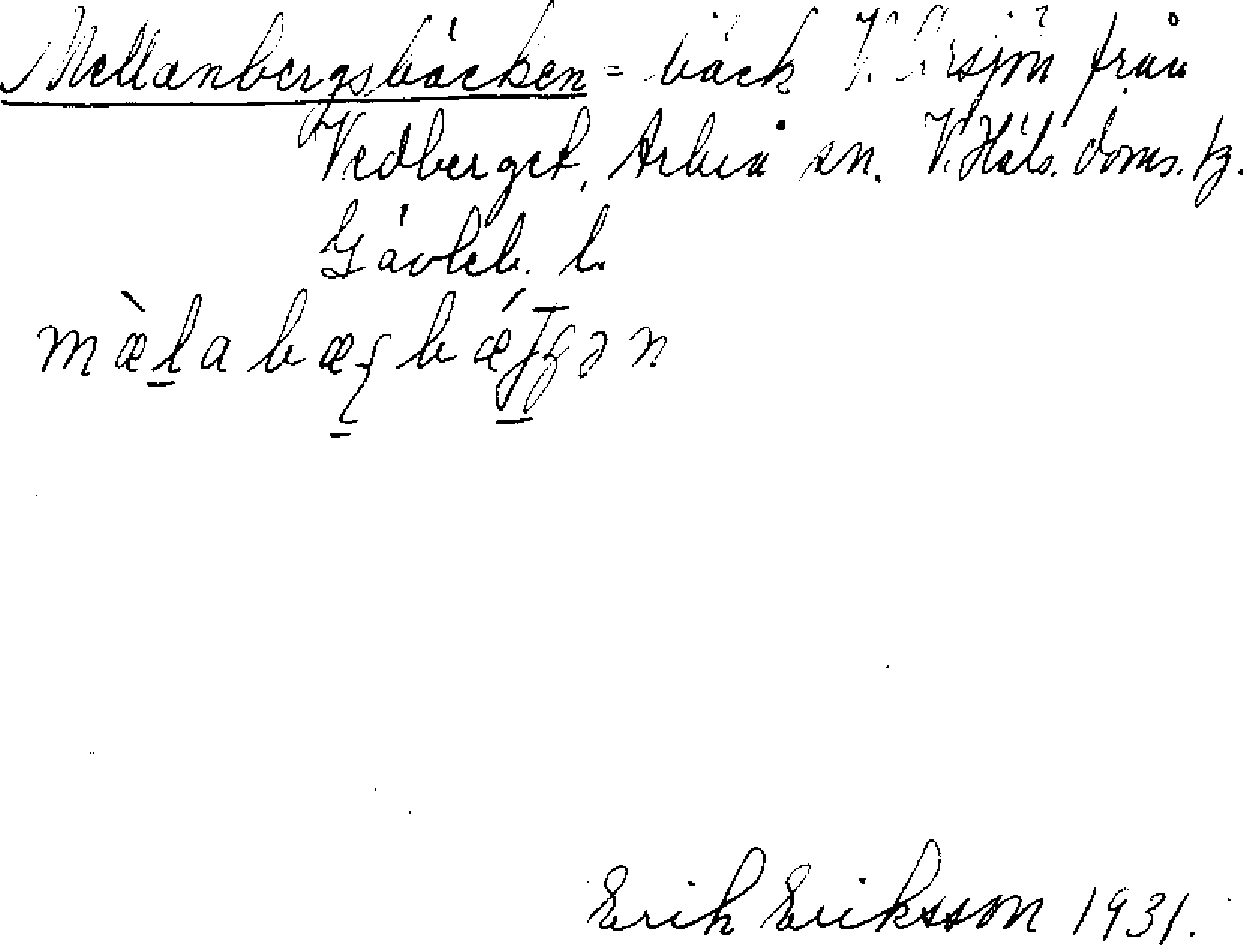 Mellanbergsbäcken = bäck V. Ersjön från
Vedberget, Arbrå sn. V. Häls. doms. tg.
Gävleb. l.
Erik Eriksson 1931.